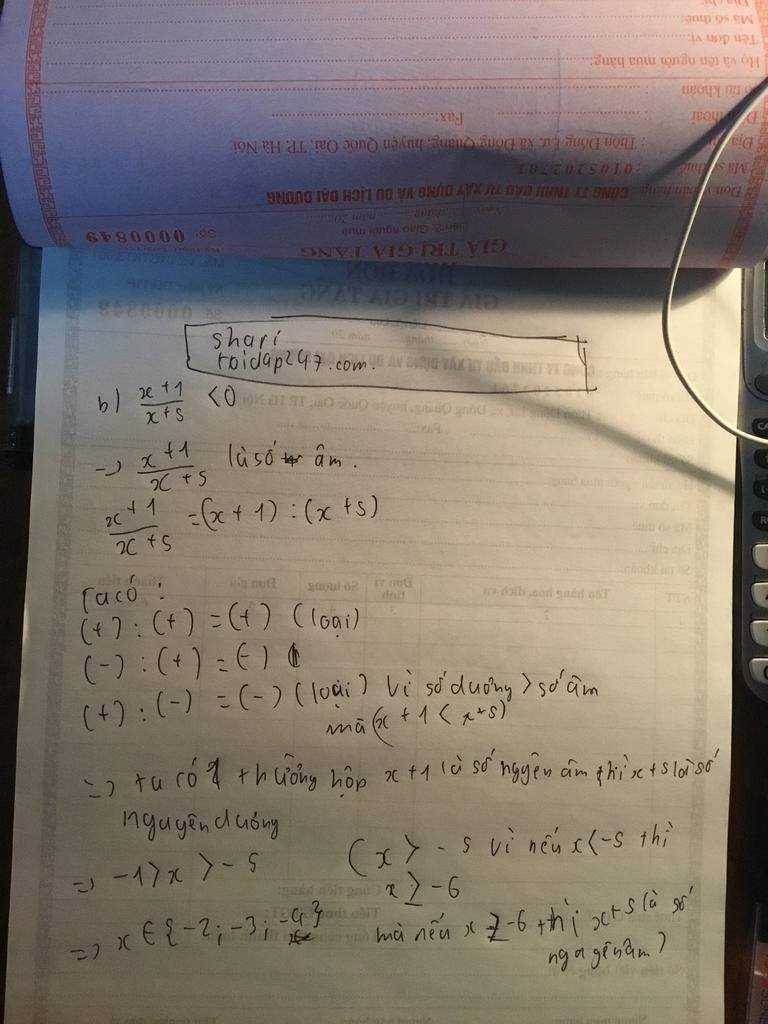 Mã số thuế
Tên đơn vị:
Họ và tên người mua hàng:
Số tài khoản
Fax:
: Thôn Đồng Lư, xã Đồng Quang, huyện Quốc Oai, TP. Hà Nội
Mã số thuế : 0105202701
Đơn vị bán hàng: CÔNG TY TNHH ĐẦU TƯ XÂY DỰNG VÀ DU LỊCH ĐẠI DƯƠNG
Liên 2: Giao người mua
Số: 0000849
GIÁ TRỊ GIA TĂNG
shari
toidap247.com.
b) x+1/x+5 <0
-> x+1/x+5 là số âm.
x+1/x+5 =(x+1) : (x+5)
Ta có :
(+) : (+) = (+) (loại)
(-) : (+) = (-)
(+) : (-) = (-) (loại) Vì số dương > số âm
mà (x+1 < x+5)
=> ta có 1 thường hộp x+1 là số ngyên âm thì x+5 là số
nguyên dương
=> -1>x > -5 (x > -5 vì nếu x<-5 thì
x ≥ -6
=> x ∈ {-2; -3; -4} mà nếu x ≥ -6 thì x+5 là số
ngyên âm)